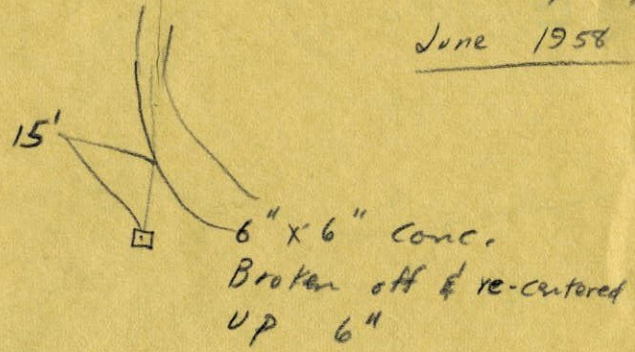 June 1958
15'
6" x 6" Conc.
Broken off & re-centered
Up 6"